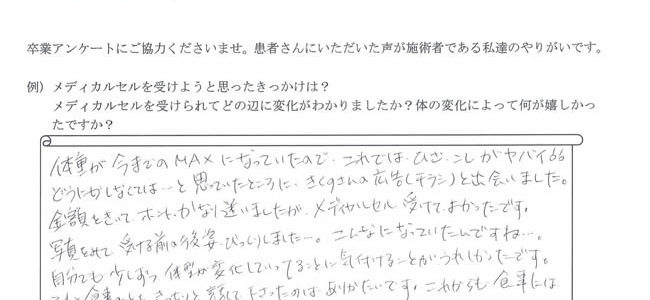 卒業アンケートにご協力くださいませ。患者さんにいただいた声が施術者である私達のやりがいです。
例）メディカルセルを受けようと思ったきっかけは？
メディカルセルを受けられてどの辺に変化がわかりましたか？体の変化によって何が嬉しかっ
たですか？
体重が今までのMAXになっていたので、これでは、ひざ、こしがヤバイ
どうにかしなくては…と思っていたところに、さくのさんの広告(チラシ)と出会いました。
金額をきいて ホント、かなり迷いましたが、メディカルセル 受けて、よかったです。
写真をみて 受ける前の後姿、びっくりしました…。こんなになっていたんですね…。
自分でも 少しずつ、体型が変化していってることに気付けることがうれしかったです。
食事 ありがたいです。これからも 食事には